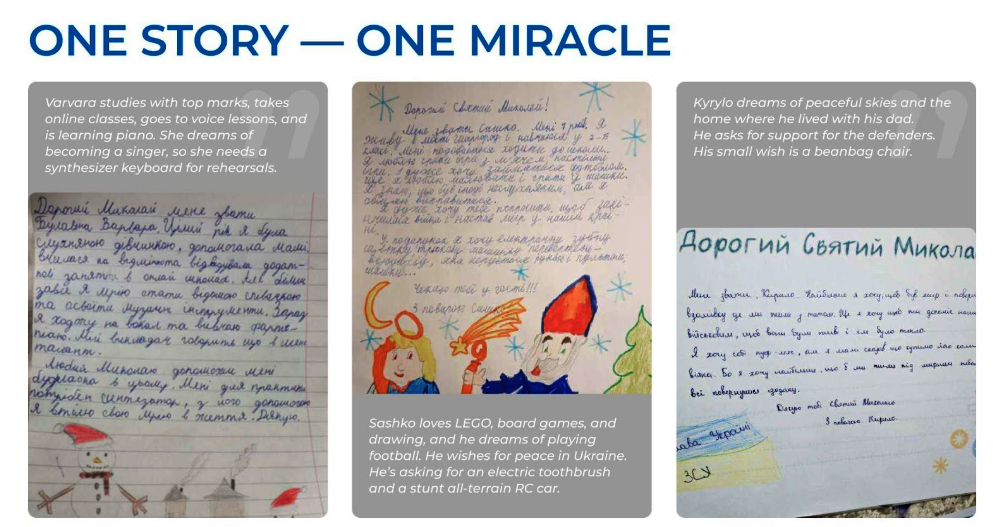 ONE STORY — ONE MIRACLE
Varvara studies with top marks, takes
online classes, goes to voice lessons, and
is learning piano. She dreams of
becoming a singer, so she needs a
synthesizer keyboard for rehearsals.
Дорогий Миколай мене звати
Варвара Цілий рік я була
слухняною дівчинкою, допомагала мамі,
вчилася на відмінно відвідувала додат-
кові заняття в онлай школах.
завсе Я мрію стати відомою співачкою
та освоїти музичні інструменти. Зараз
Я ходжу на вокал та вивчаю форте-
піано. Мій викладач говорить що в мене
талант.
Любий Миколаю допоможи мені
будьласка в цьому. Мені для практики
потрібен синтезатор, з його допомогою
Я втілю свою мрію в життя. Дякую.
Дорогий Святий Миколай!
Мене звати Сашко. Мені 7 років. Я
живу в місті і навчаюсь у 2-В
класі. Мені подобається ходити до школи.
Я люблю грати
ігри. І дуже хочу займатися футболом.
Ще я люблю малювати і грати в шашки.
Я знаю, що був іноді неслухняним, але я
обіцяю виправитися.
Я дуже хочу тебе попросити, щоб закі-
нчилася війна і настав мир у нашій краї-
ні.
У подарунок я хочу електричну зубну
щітку
яка керується рукою і пультом
Чекаю тебе у гості!!!
З повагою Сашко
Sashko loves LEGO, board games, and
drawing, and he dreams of playing
football. He wishes for peace in Ukraine.
He's asking for an electric toothbrush
and a stunt all-terrain RC car.
Kyrylo dreams of peaceful skies and the
home where he lived with his dad.
He asks for support for the defenders.
His small wish is a beanbag chair.
Дорогий Святий Микола
Мене звати Кирило. Найбільше я хочу, щоб був мир і
де ми жили з татом. Ще я хочу щоб ти допоміг наши
військовим, щоб вони були живі і їм було тепло.
Я хочу собі
війна. Бо я хочу найбільше, що б ми жили під мирним небом
всі повернулися додому.
Дякую тобі Святий Миколаю
З повагою Кирило.
лава Україні
ЗСУ